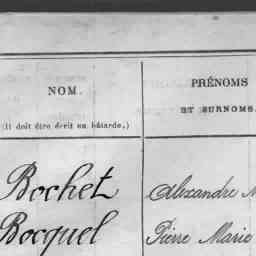 NOM.
PRÉNOMS
ET SURNOMS.
(Il doit être écrit en bâtarde.)
Bochet
Alexandre
Bocquel
Pierre Marie